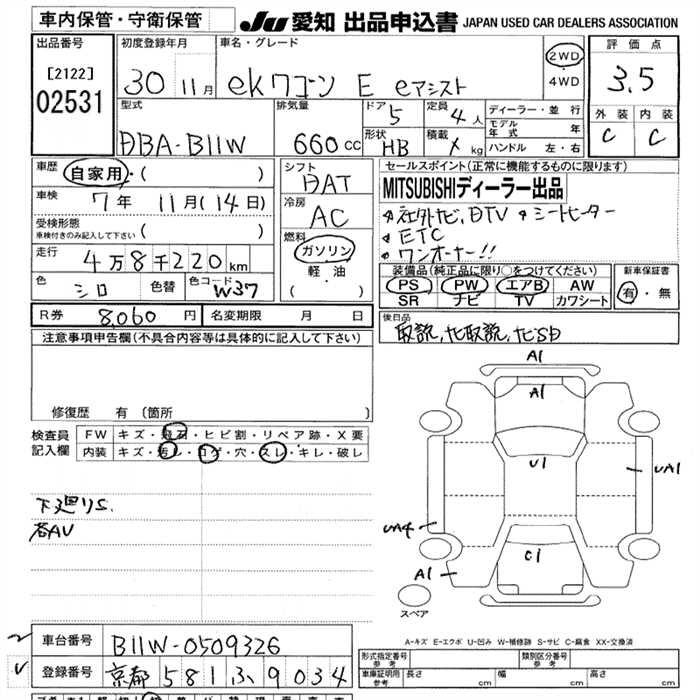 車内保管・守衛保管
JU 愛知 出品申込書 JAPAN USED CAR DEALERS ASSOCIATION
出品番号
[2122]
02531
初度登録年月
30 11月
車名・グレード
ekワゴン E eアシスト
2WD
4WD
評価点
3.5
外装 内装
C C
型式
DBA-B11W
排気量
660cc
ドア
5
定員
4人
形状
HB
積載
kg
ディーラー・並行
モデル年式 年
ハンドル 左・右
車歴
自家用・( )
車検
7年 11月(14日)
受検形態
車検付きのみ記入して下さい ( )
走行
4万8千220km
色
シロ
色替
色コード
W37
シフト
DAT
冷房
AC
燃料
ガソリン
軽・油
( )
セールスポイント(正常に機能するものに限ります)
MITSUBISHIディーラー出品
社外ナビ,DTV シートヒーター
ETC
ワンオーナー!!
装備品(純正品に限り○をつけてください)
PS PW エアB AW
SR ナビ TV カワシート
新車保証書
有・無
R券
8,060円
名変期限 月 日
後日品
取説,ナビ取説,ナビSD
注意事項申告欄(不具合内容等は具体的に記入して下さい)
修復歴 有(箇所 )
検査員記入欄
FW キズ・飛石・ヒビ割・リペア跡・X要
内装 キズ・汚レ・コゲ・穴・スレ・キレ・破レ
下廻りS.
各AU
A1
A1
U1
UA1
UA4
C1
A1
スペア
A-キズ E-エクボ U-凹み W-補修跡 S-サビ C-腐食 XX-交換済
車台番号
B11W-0509326
登録番号
京都 581 ふ 9034
形式指定番号
参考
類別区分番号
参考
車庫証明用
参考
長さ cm 幅 cm 高さ cm